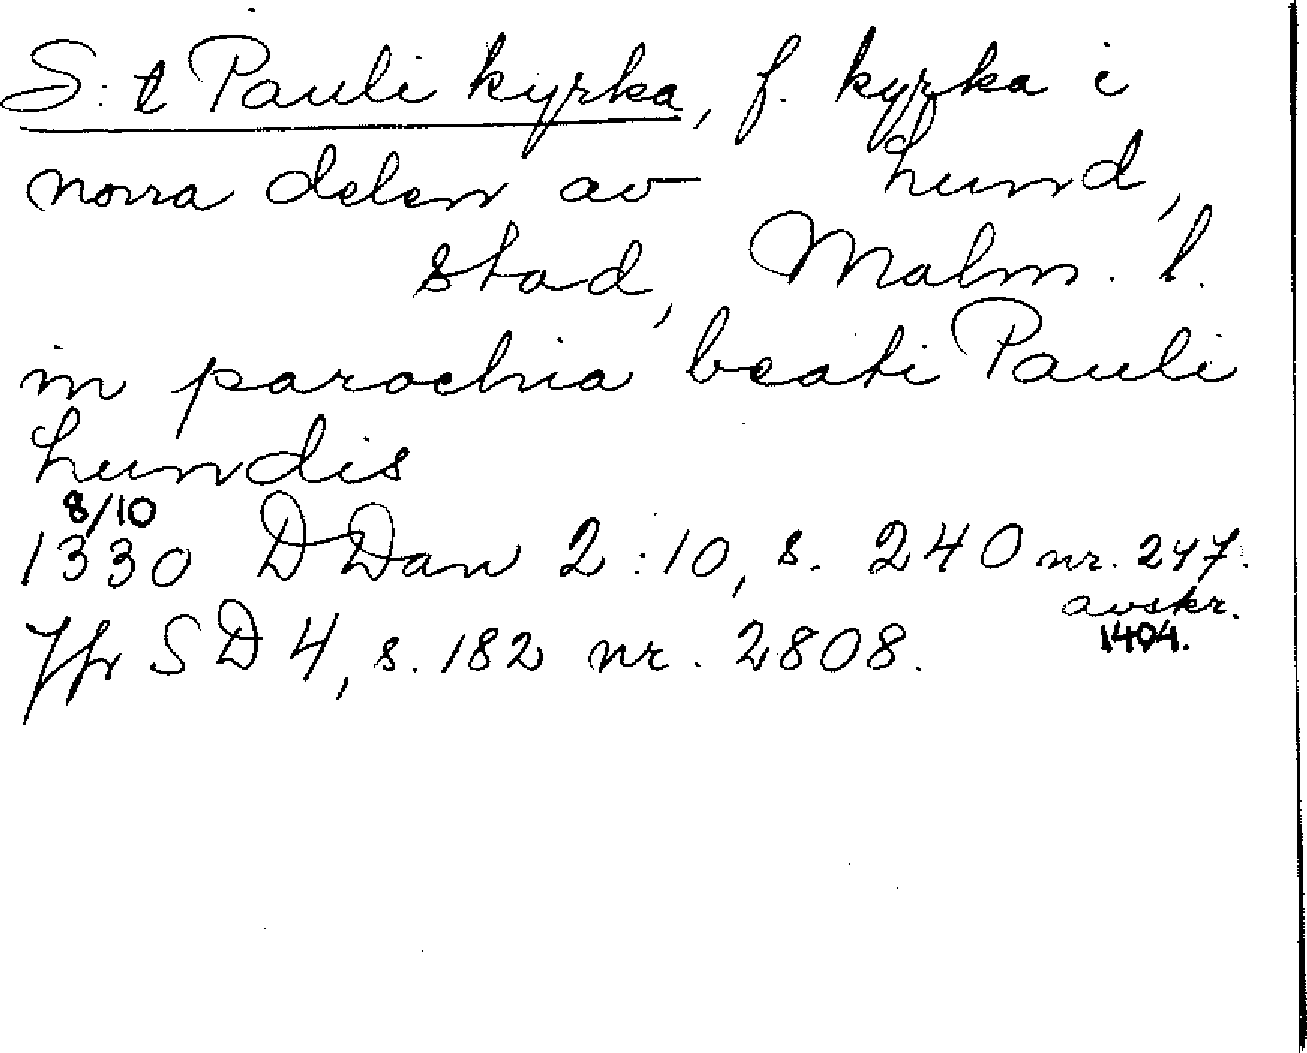 S:t Pauli kyrka, f. kyrka i
norra delen av Lund,
stad, Malm. l.
in parochia beati Pauli
Lundis
8/10
1330 DDan 2:10, s. 240 nr. 247.
avskr.
1404.
Jfr SD 4, s. 182 nr. 2808.